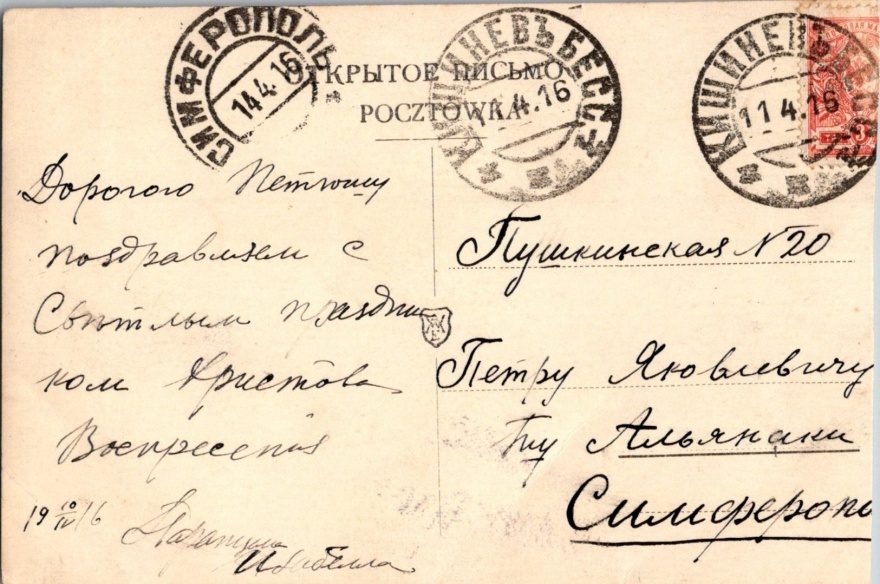 СИМФЕРОПОЛЬ
14.4.16
ОТКРЫТОЕ ПИСЬМО
POCZTOWKA
КИШИНЕВЪ БЕСС.
11.4.16
КИШИНЕВЪ БЕСС.
11.4.16
Дорогого Петюшу
поздравляем с
Свѣтлым праздни
ком Христова
Воскресенія
19 10/IV 16
Изабелла
Пушкинская N 20
Петру Яковлевичу
Альянаки
Симферопо